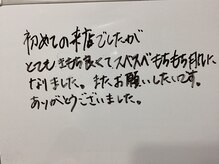 初めての来店でしたが
とてもきもち良くてスベスベもちもち肌に
なりました。またお願いしたいです。
ありがとうございました。